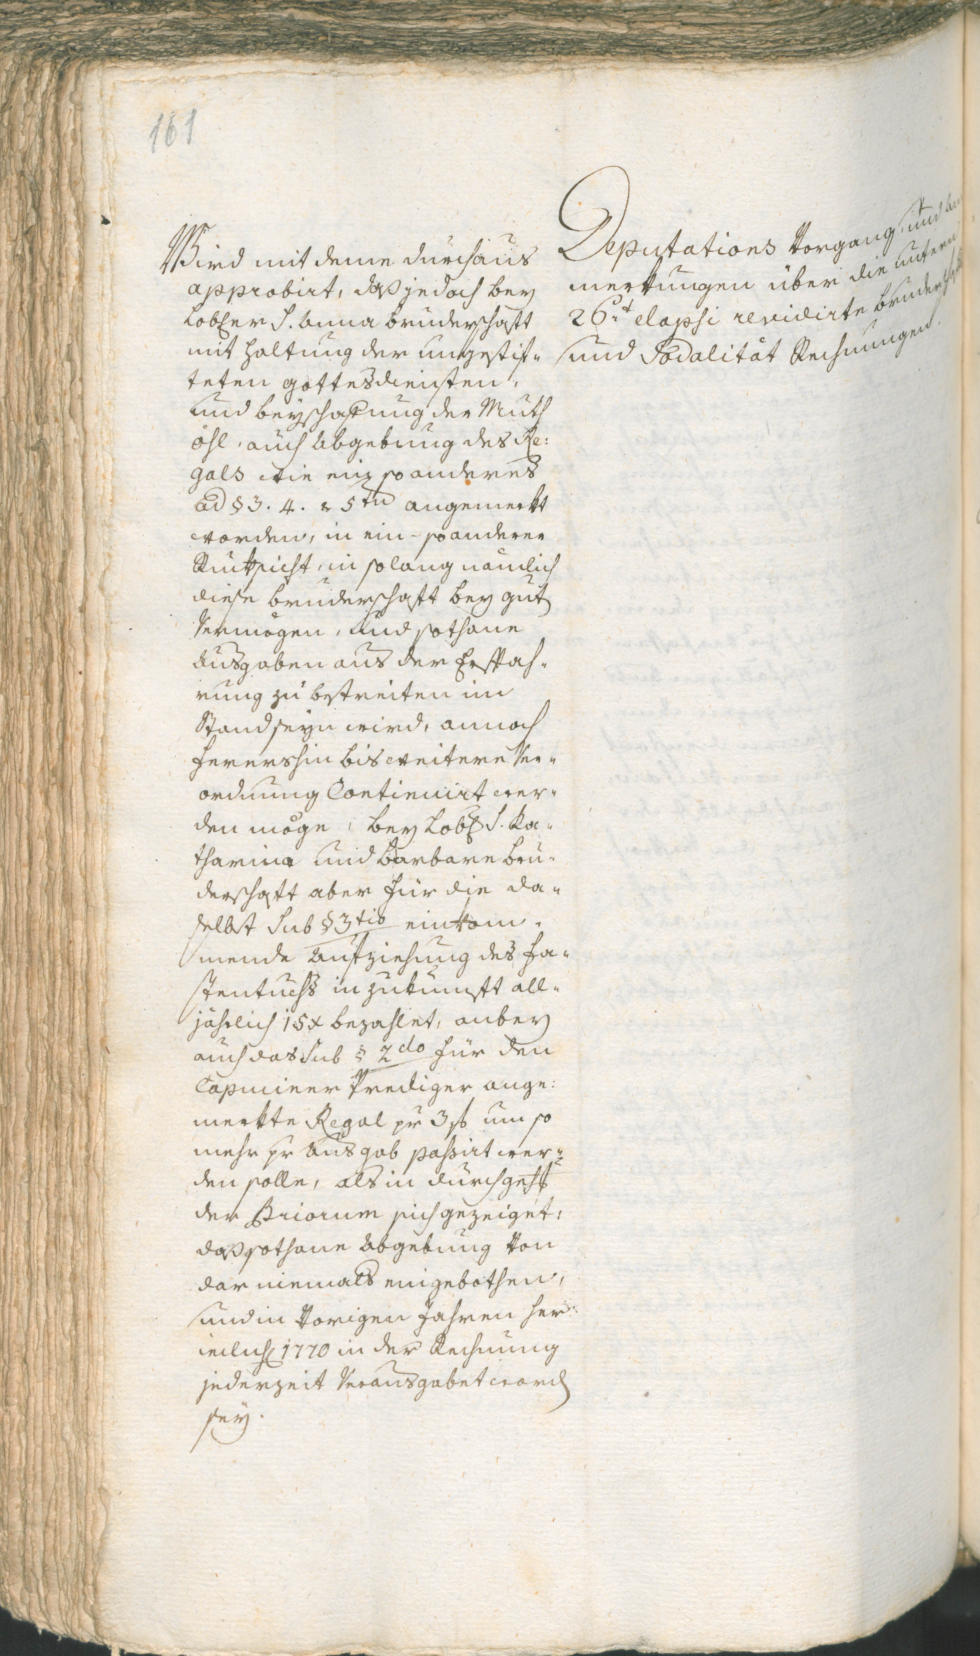 161
Wird mit deme durchaus
approbirt, daß jedoch bey
Lobler S. Anna bruderschafft
mit Haltung der ungestif-
teten gottesdiensten,
und beyschaffung der Muth
öhl, auch Abgebung des Re:
gals wie ein so anderes
ad § 3. 4. & 5tu angemerkt
worden, in ein- so anderer
Rucksicht, in solang nämlich
diese bruderschafft bey gut
Vermögen, und sothane
Ausgaben aus der Erspah-
rung zu bestreiten im
Stand seyn wird, annoch
fernershin bis weitere Ver-
ordnung Continuirt wer-
den möge, bey Lobl S. Ka-
tharina und Barbara bru-
derschafft aber für die da-
selbst Sub § 3tio einkom-
mende Aufziehung des Fa-
stentuchs in Zukunfft all-
jährlich 15x bezahlet, anbey
auch das Sub § 2do für den
Capuciner Prediger ange:
merkte Regal pr 3 f um so
mehr pr Ausgab paßirt wer-
den solle, als in durchgehung
der Priorum sich gezeiget:
daß sothane Abgebung von
dar niemals eingebothen,
und in vorigen Jahren
1770 in der Rechnung
jederzeit Verausgabet word
sey.
Deputations Vorgang und An
merkungen über die untern
26t elapsi revidirte bruderschafft
und Sodalität Rechnungen.